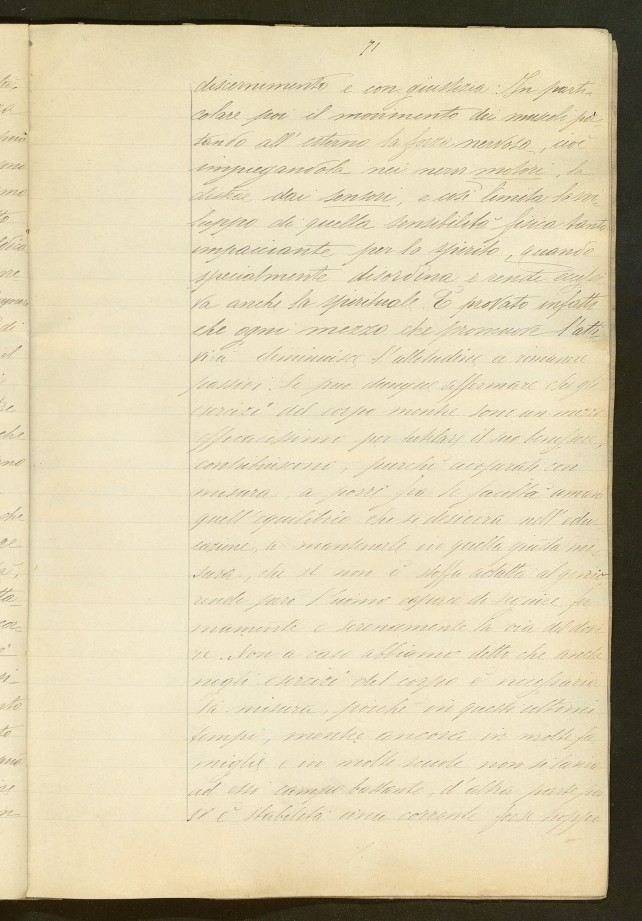 71
discernimento e con giustizia. In parti-
colare poi il movimento dei muscoli por
tando all'esterno la forza nervosa, cioè
impiegandola nei nervi motori, la
distrae dai sensori, e così limita lo svi
luppo di quella sensibilità fisica tanto
impacciante per lo spirito, quando
specialmente disordina e rende eccessi
va anche la spirituale. È provato infatti
che ogni mezzo che promuova l'atti-
vità diminuisce l'attitudine a rimanere
passivi. Si può dunque affermare che gli
esercizi del corpo mentre sono un mezzo
efficacissimo per tutelare il suo benessere,
contribuiscono, purchè adoperati con
misura, a porre fra le facoltà umane
quell'equilibrio che si desidera nell'edu
cazione, a mantenerle in quella giusta mi
sura, che se non è stoffa adatta al genio
rende però l'uomo capace di seguire fer
mamente e serenamente la via del dove
re. Non a caso abbiamo detto che anche
negli esercizi del corpo è necessaria
la misura, poichè in questi ultimi
tempi, mentre ancora in molte fa
miglie e in molte scuole non si lascia
ad essi campo bastante, d'altra parte poi
si è stabilita una corrente forse troppo